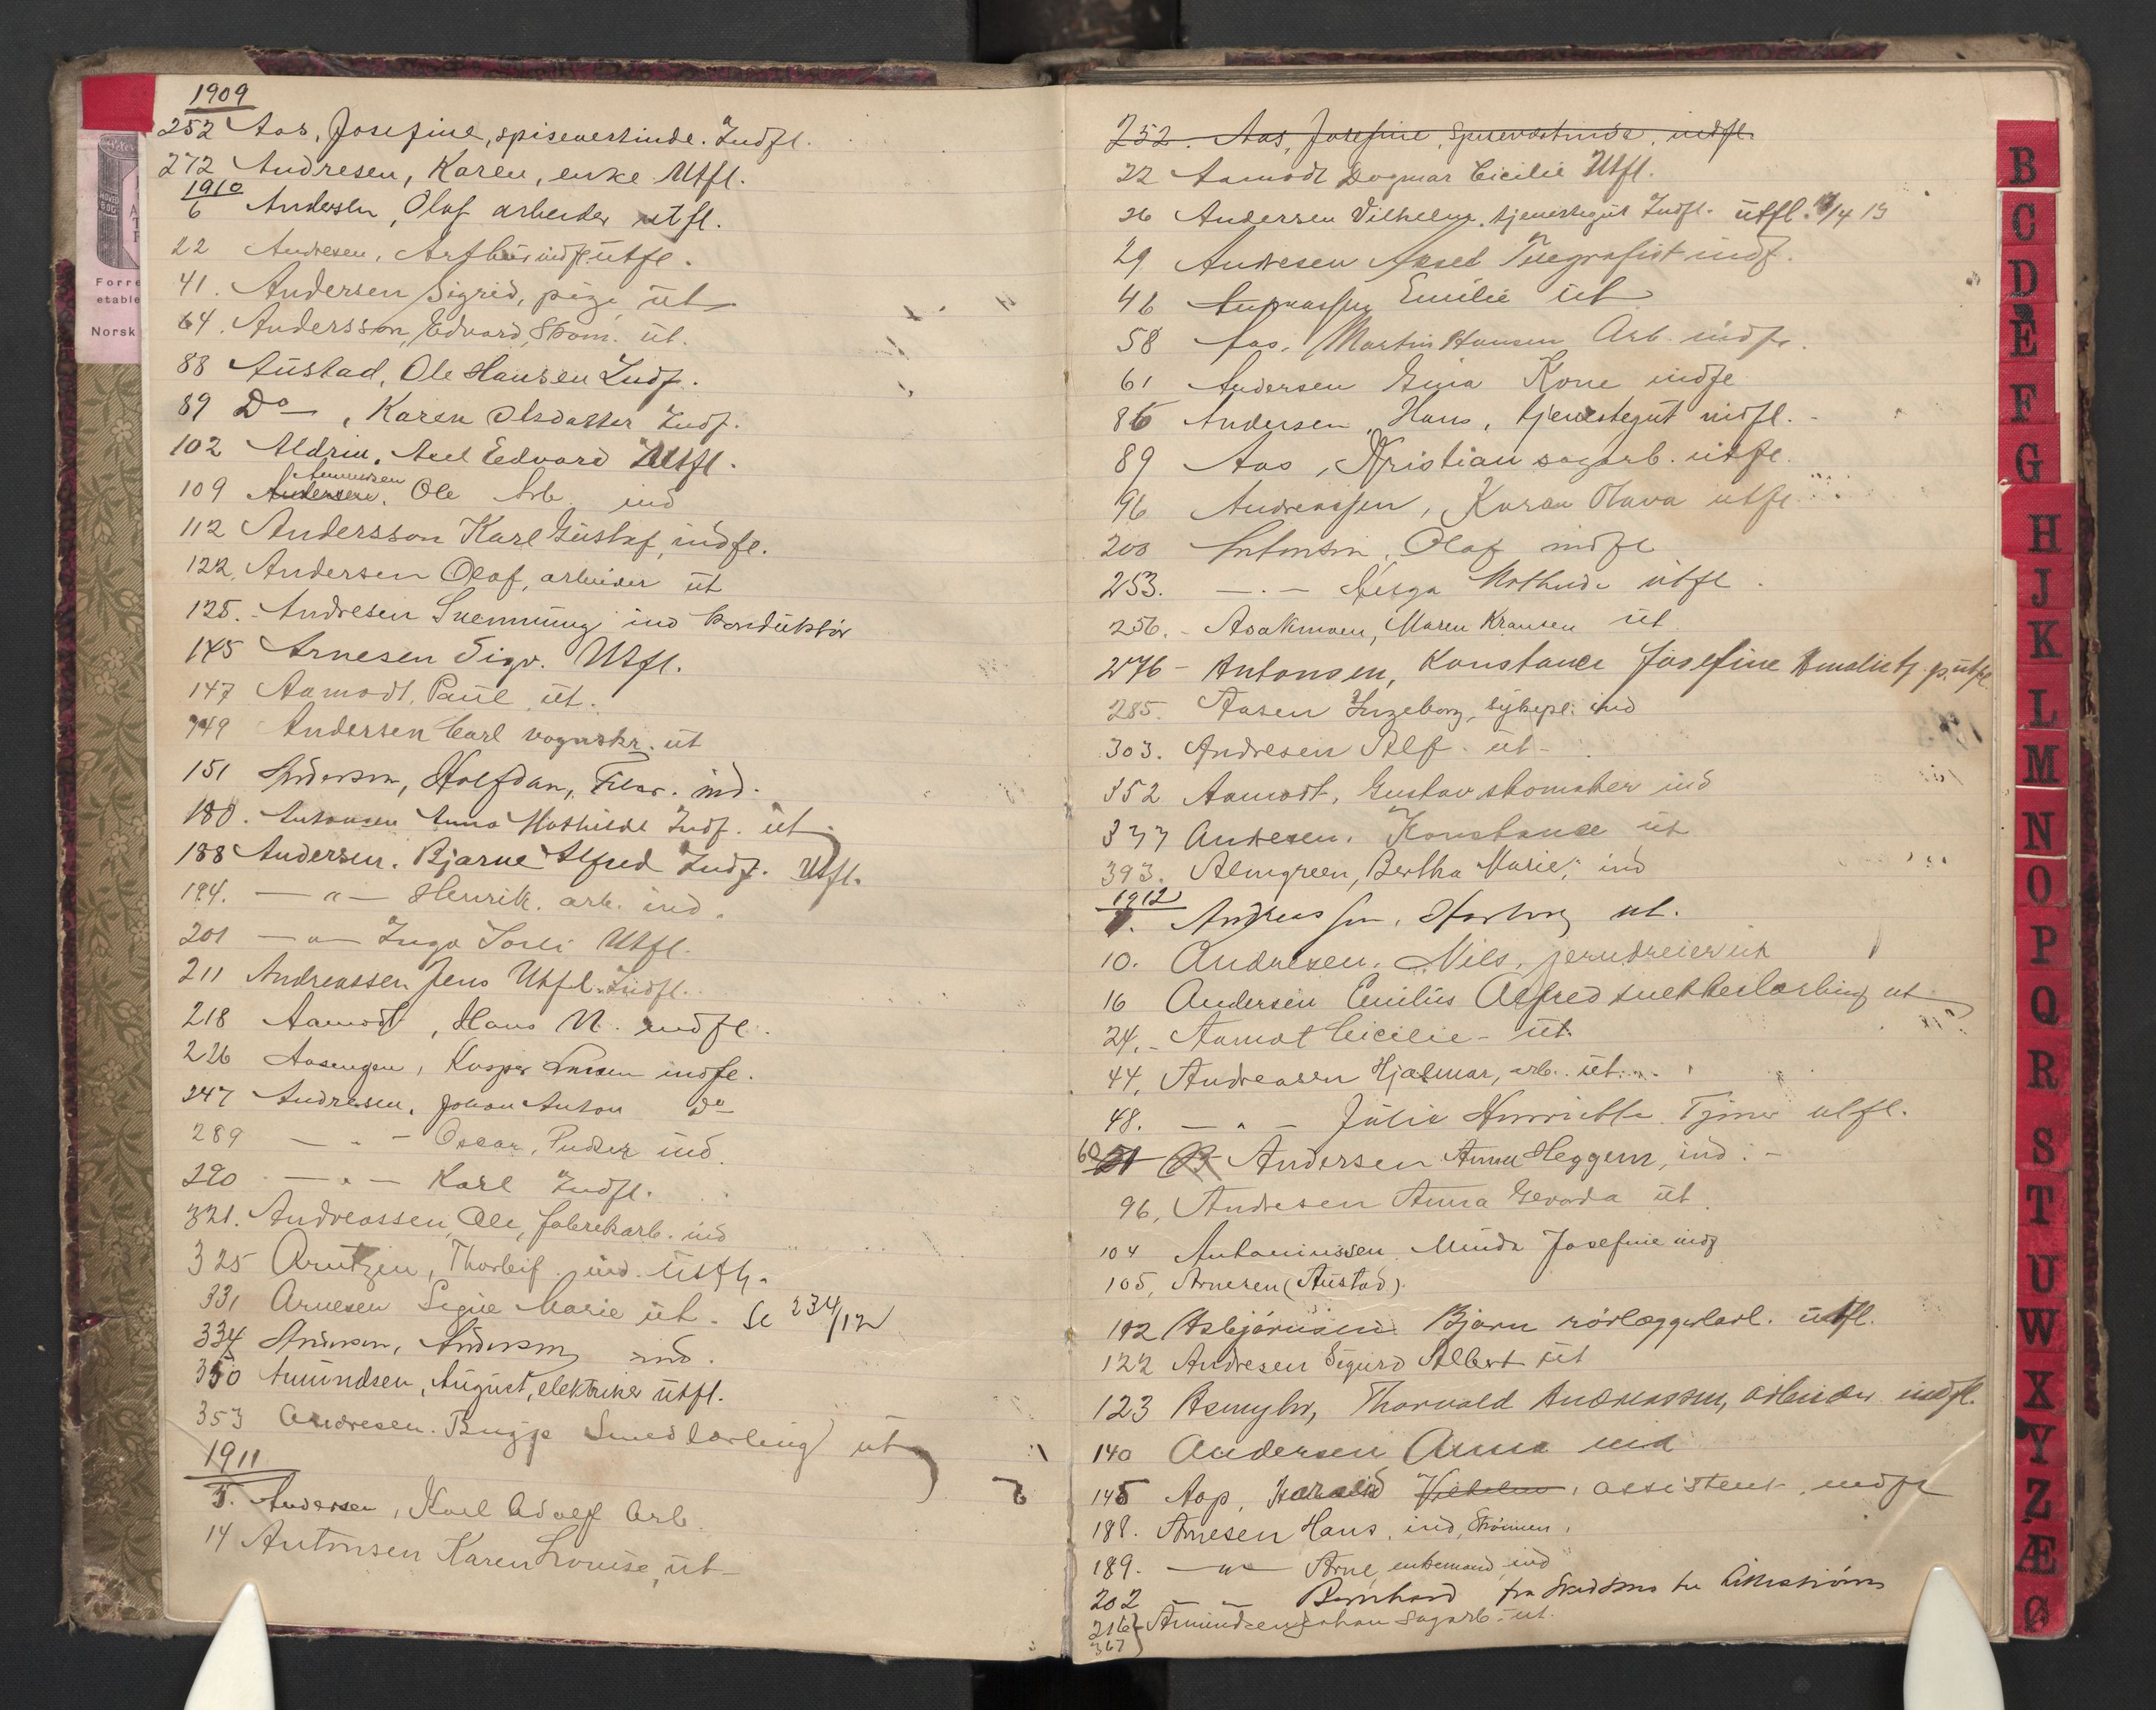 1909
252 Aas, Josefine, spisevertinde. Indfl.
272 Andresen, Karen, enke Utfl.
1910
6 Andersen, Olaf arbeider utfl.
22 Andresen, Arthur indfl utfl.
41. Andersen Sigrid, pige, ut
64. Andersson, Edvard, Skom. ut.
88 Austad, Ole Hansen Indf.
89 Do , Karen Olsdatter Indf.
102 Aldrin, Axel Edvard Utfl.
Ammundsen
109 Andersen, Ole Arb. ind
112 Andersson Karl Gustaf, indfl.
122. Andersen Olaf, arbeider ut
125. Andresen Svenning ind konduktör
145 Arnesen Sigv. Utfl.
147 Aamodt, Paul, ut.
149 Andersen Carl vognskr. ut
151 Anderson, Halfdan, Filar. ind.
180. Antonsen Anna Mathilde Indf. ut
188 Andersen. Bjarne Alfred Indf. Utfl.
194. — " — Henrik. arb. ind.
201 — " — Inga Utfl.
211 Andreassen Jens Utfl. Indfl.
218 Aamodt, Hans N. indfl.
226 Aasengen, Kasper Larsen indfl.
247 Andresen, Johan Anton Do
289 — " — Oscar, Pudser ind.
290 — " — Karl Indfl.
321. Andreassen, Ole, fabrikarb. ind
325 Arntzen, Thorleif. ind. Utfl.
331 Arnesen Signe Marie ut. Se 234/12
334 Andersen, Anderson ind.
350 Amundsen, August, elektriker utfl.
353 Andresen. Smedlærling ut
1911
5. Andersen, Karl Adolf Arb.
14 Antonsen Karen Lovise, ut
252. Aas, Josefine, Spisevertinde, indfl.
22 Aamodt Dagmar Cicilie Utfl.
26 Andersen Vilhelm, tjenestegut Indfl. utfl. /4 13
29 Andresen Aksel Telegrafist indf.
46 Andreassen Emilie ut
58 Aas, Martin Hansen Arb. indfl.
61 Andersen Gina Kone indfl
86 Andersen, Hans, tjenestegut indfl.
89 Aas, Kristian sagarb. utfl.
96 Andreassen, Karen Olava utfl
200 Antonsen, Olaf indfl
253. — . — Helga Mathilde utfl.
256. Aaakmoen, Maren Kransen ut
276 - Antonsen, Konstance Josefine Amalie tj. p. utfl.
285. Aasen Ingeborg, sykepl. ind
303. Andresen Alf. ut
352 Aamodt, Gustav skomaker ind
377 Andresen. Konstance ut
393. Almgreen, Bertha Marie, ind
1912
7. Andreassen, Harborg ut.
10. Andresen, Nils, jerndreier ut
16 Andersen Emilius Alfred snekkerlærling ut
24. - Aamot Cicilie - ut.
44, Andreasen Hjalmar, arb. ut.
48. — " — Julie Henriette Tjener utfl.
60 51 Andersen Anna Heggem, ind. -
96, Andresen Anna Gevarda ut
104 Antoniussen Minda Josefine indf
105, Arnesen (Austad).
112 Asbjörnsen Bjarn rörlæggerlærl. utfl.
122 Andresen Sigurd Albert ut
123 Asmyhr, Thorvald Andreassen, arbeider indfl.
140 Andersen Anna ind
145 Aap, Harald Vilhelm, assistent, indfl
188. Arnesen Hans, ind, Strömmen.
189. — " — Arne, enkemand, ind
202 — " — Bernhard fra Skedsmo til Lillestrøm
216} Amundsen Johan Sagarb. ut.
367}
B
C
D
E
F
G
H
J
K
L
M
N
O
P
Q
R
S
T
U
W
X
Y
Z
Æ
Ø